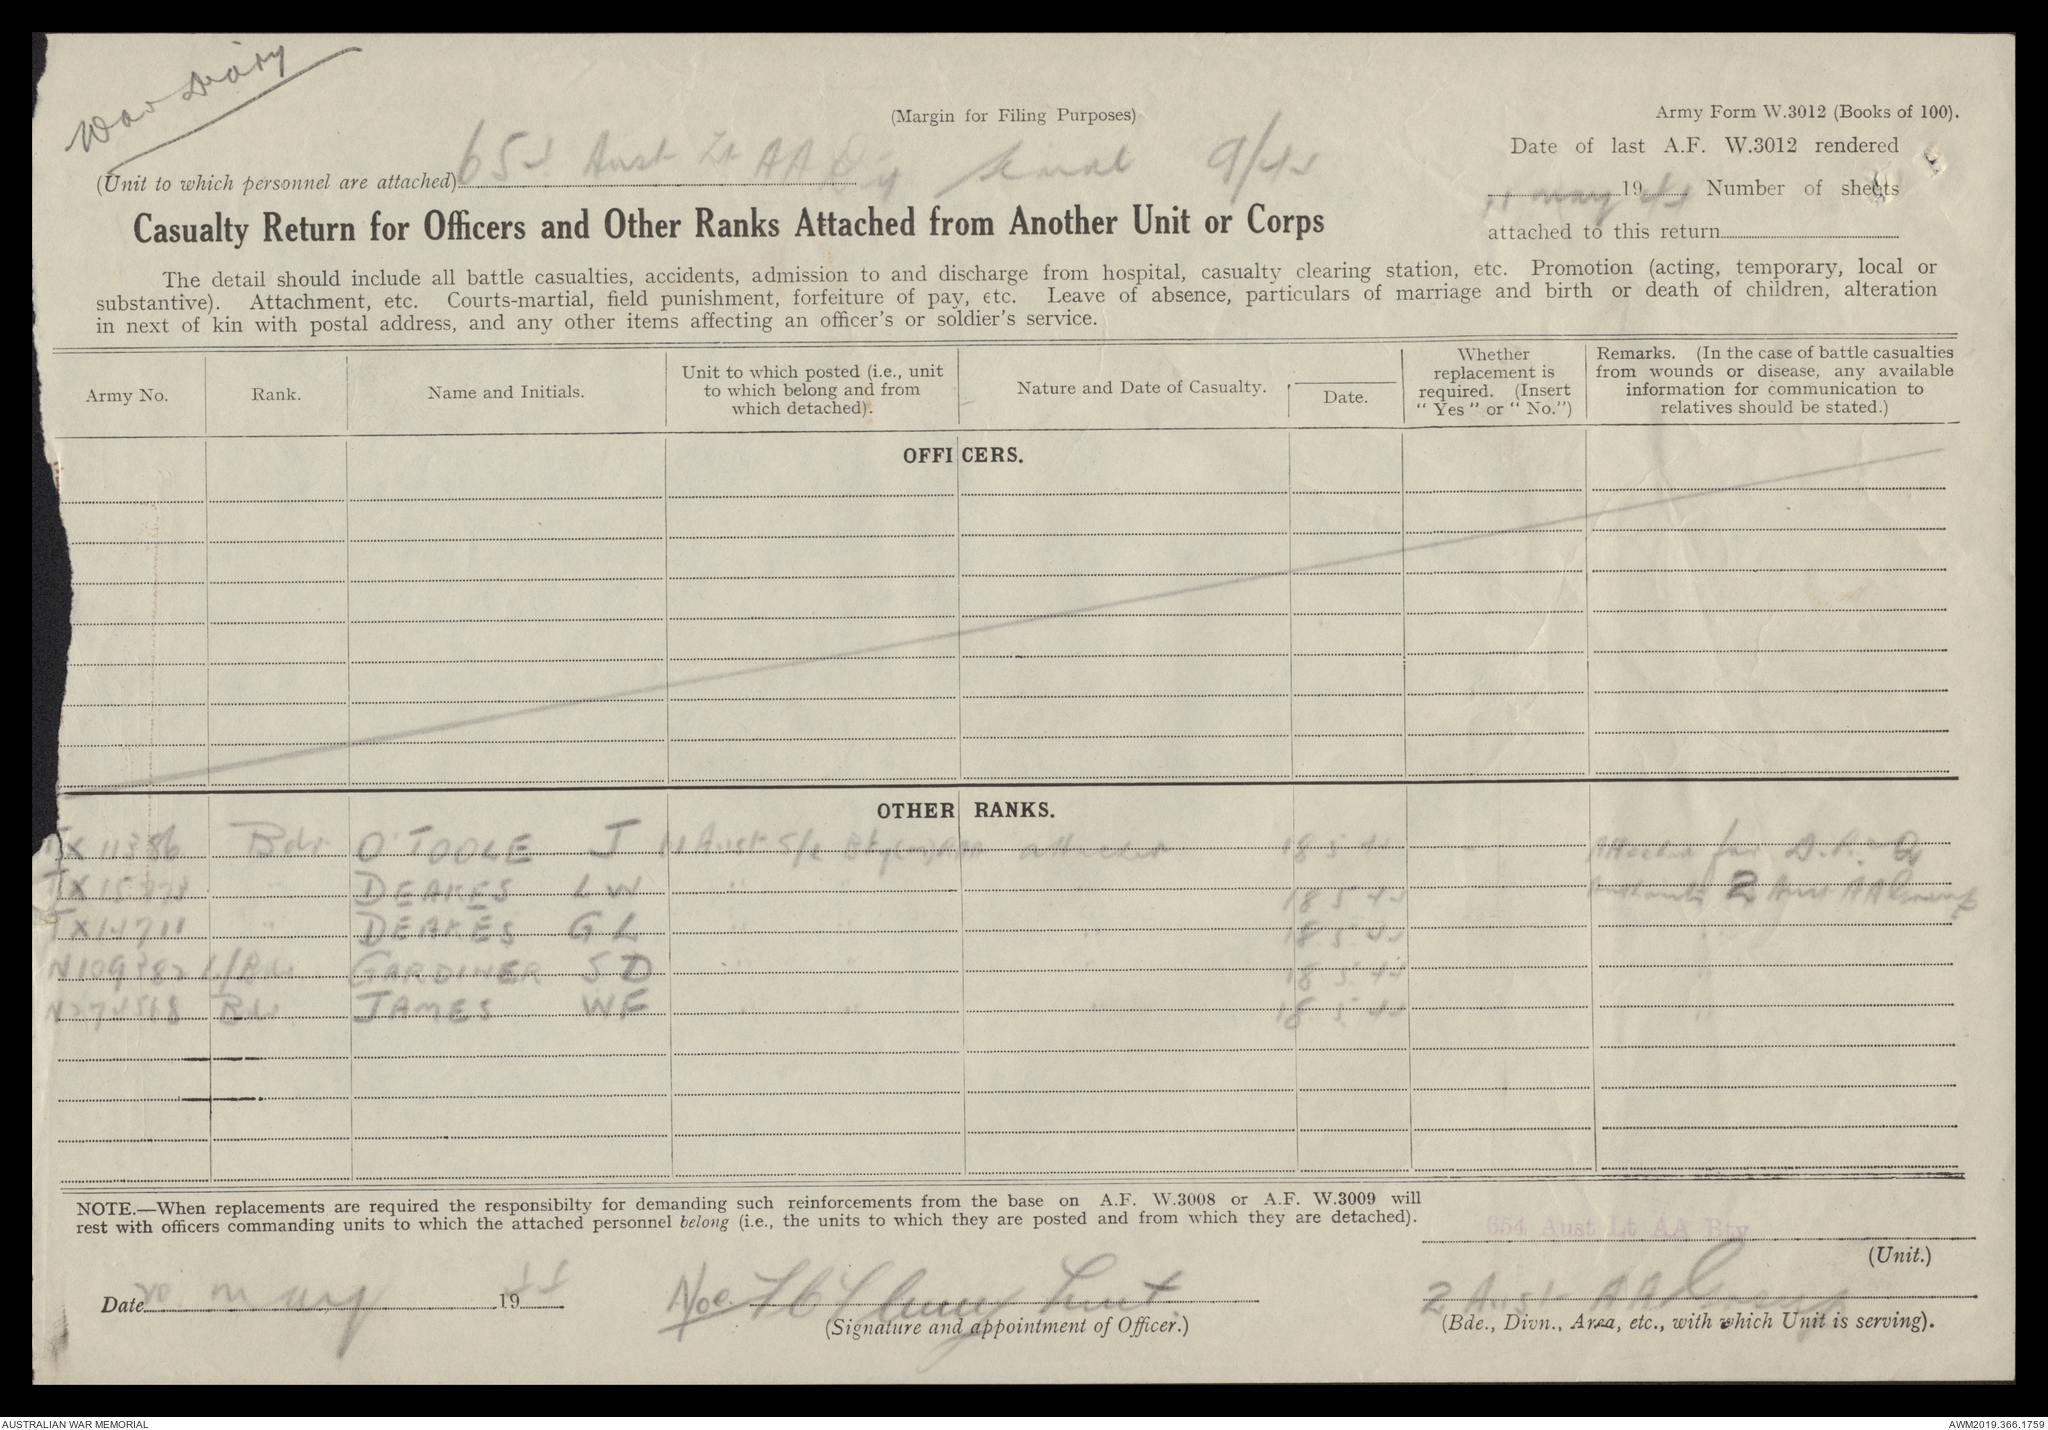 War Diary
(Margin for Filing Purposes)
Army Form W.3012 (Books of 100).
(Unit to which personnel are attached) 654 Aust Lt AA Bty Serial 9/45
Date of last A.F. W.3012 rendered
11 May 1945 Number of sheets
attached to this return
Casualty Return for Officers and Other Ranks Attached from Another Unit or Corps
The detail should include all battle casualties, accidents, admission to and discharge from hospital, casualty clearing station, etc. Promotion (acting, temporary, local or
substantive). Attachment, etc. Courts-martial, field punishment, forfeiture of pay, etc. Leave of absence, particulars of marriage and birth or death of children, alteration
in next of kin with postal address, and any other items affecting an officer's or soldier's service.
Army No. Rank. Name and Initials. Unit to which posted (i.e., unit to which belong and from which detached). Nature and Date of Casualty. Date. Whether replacement is required. (Insert "Yes" or "No.") Remarks. (In the case of battle casualties from wounds or disease, any available information for communication to relatives should be stated.)
OFFICERS.
OTHER RANKS.
TX11386 Bdr O'TOOLE J Aust S/L Bty attached 18 5 45 Attached for
DEAKES LW " " 18 5 45 2 Aust AA Group
TX14711 " DEAKES GL " " " 18 5 45 "
L/Bdr GARDINER SD " " " 18 5 45 "
Bdr JAMES WF " " " 18 5 45 "
NOTE.—When replacements are required the responsibilty for demanding such reinforcements from the base on A.F. W.3008 or A.F. W.3009 will
rest with officers commanding units to which the attached personnel belong (i.e., the units to which they are posted and from which they are detached).
654 Aust Lt AA Bty
(Unit.)
Date 20 May 1945
Lieut.
(Signature and appointment of Officer.)
2 Aust AA Group
(Bde., Divn., Area, etc., with which Unit is serving).
AUSTRALIAN WAR MEMORIAL
AWM2019.366.1759